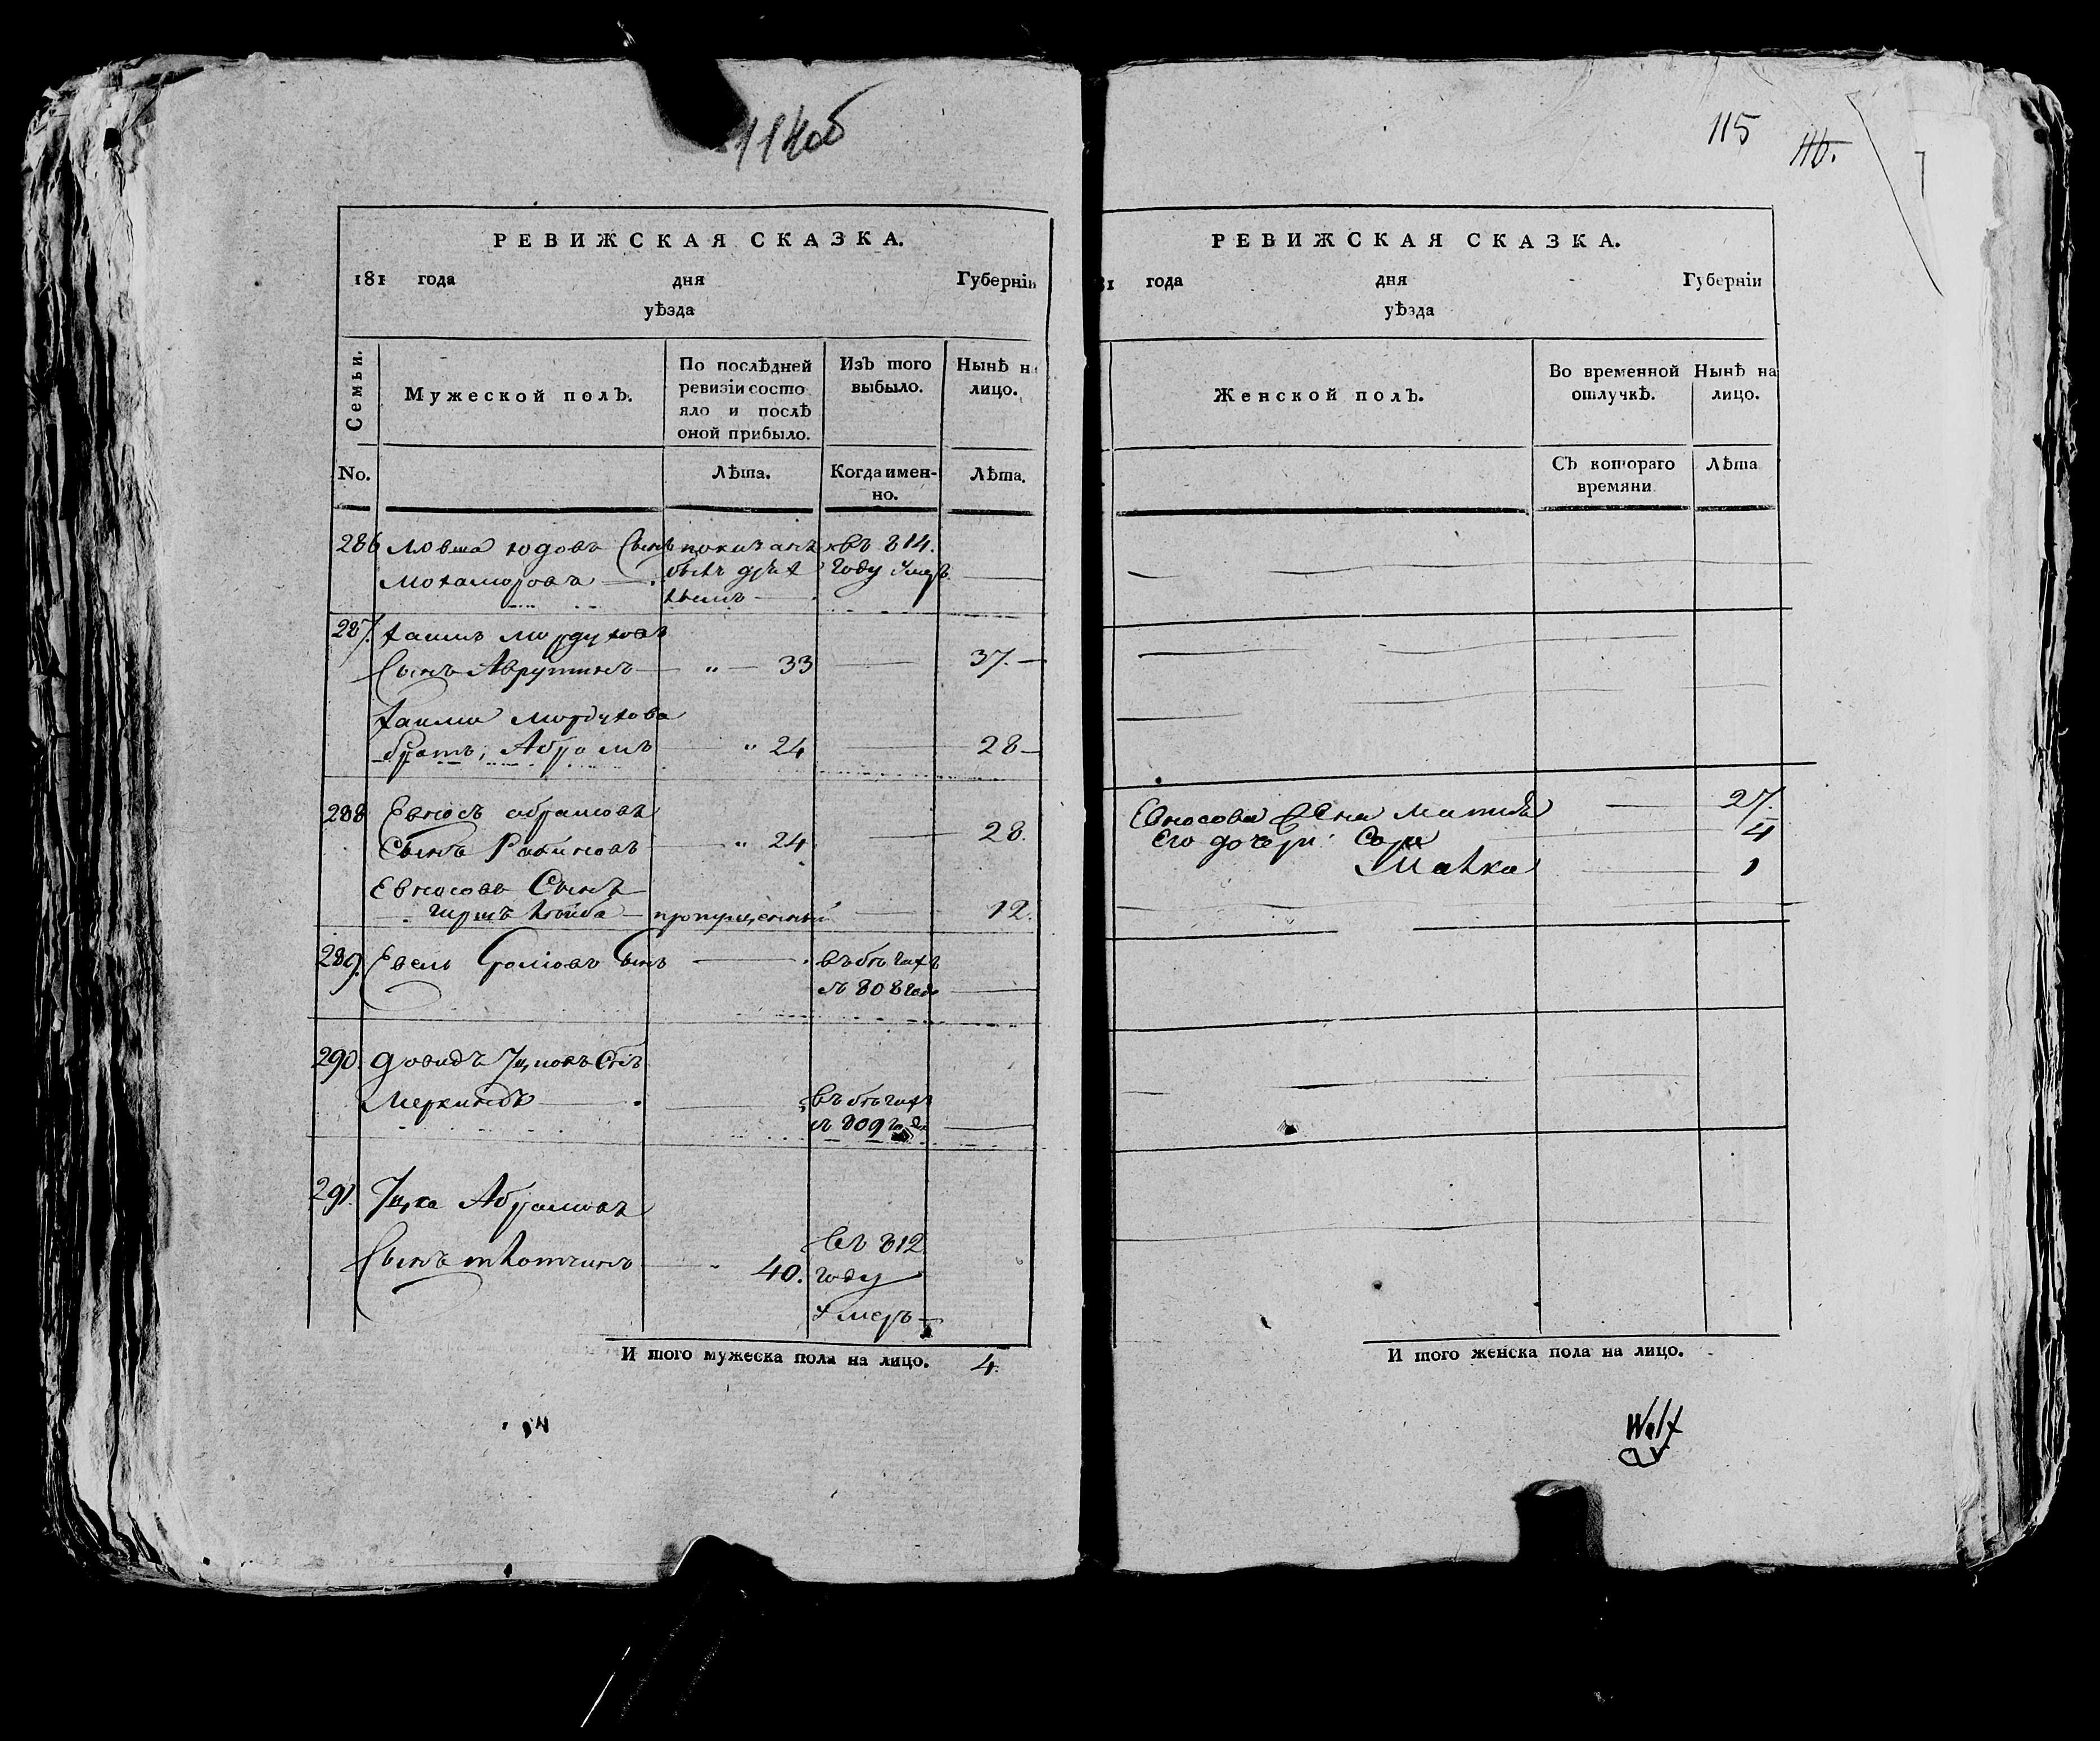 114об
РЕВИЖСКАЯ СКАЗКА.
181 года дня Губерніи
уѣзда
Семьи.
Мужеской полъ.
По послѣдней
ревизіи состо
яло и послѣ
оной прибыло.
Изъ того
выбыло.
Нынѣ на
лицо.
No.
Лѣта.
Когда имен-
но.
Лѣта.
286 Мовша Юдовъ Сынъ показанъ въ 814.
году умеръ
287. Хаимъ Мордуховъ
Сынъ Аврутинъ 33 37.
Хаима Мордухова
братъ, Абрамъ 24 28
288 Евносъ Абрамовъ
Сынъ 24 28.
Евносовъ Сынъ
Гиршъ пропущенный 12.
289. Евель Сынъ въ бѣгахъ
съ 808 года
290. Довидъ Ицковъ
Меркинъ въ бѣгахъ
съ 809 года
291. Ицка Абрамовъ
Сынъ 40. въ 812
году
умеръ
И того мужеска пола на лицо. 4.
115
116.
РЕВИЖСКАЯ СКАЗКА.
81 года дня Губерніи
уѣзда
Женской полъ.
Во временной
отлучкѣ.
Нынѣ на
лицо.
Съ котораго
времяни
Лѣта
Евносова жена 27.
Его дочери: Сора 4
1
И того женска пола на лицо.
Wolf